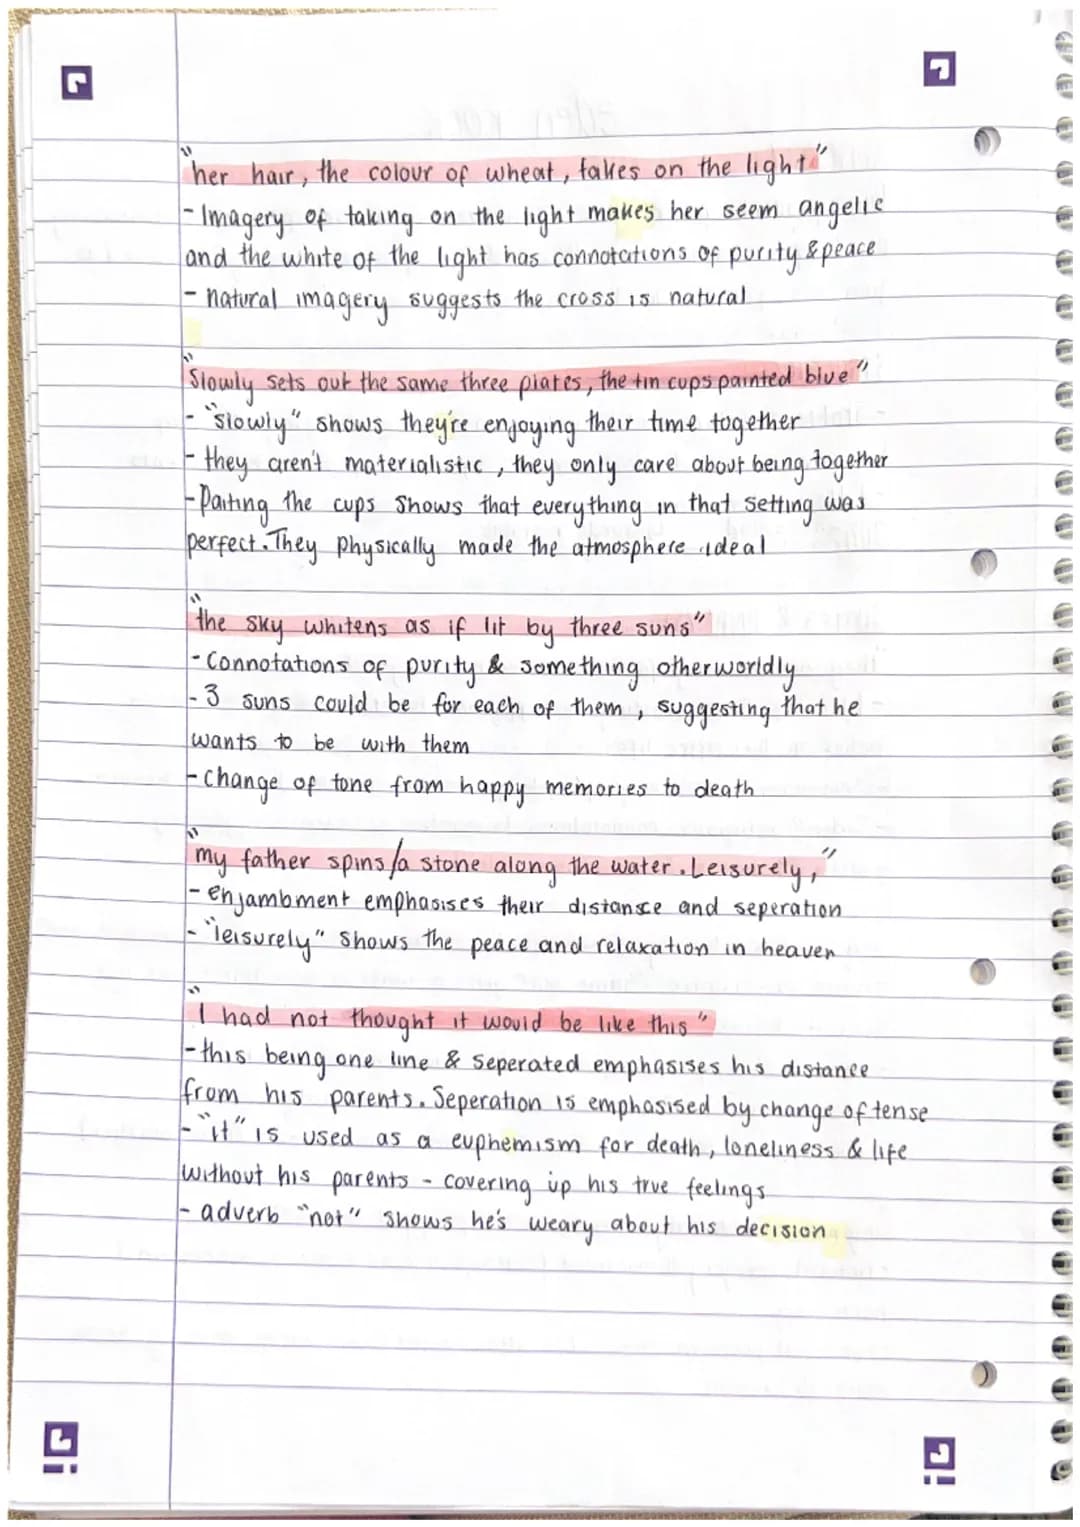 "her hair, the colour of wheat, takes on the light"
- Imagery of taking on the light makes her seem angelic
and the white of the light has connotations of purity & peace
- natural imagery suggests the cross is natural
"Slowly sets out the same three plates, the tin cups painted blue"
- "slowly" shows they're enjoying their time together
- they aren't materialistic, they only care about being together
- Paiting the cups shows that everything in that setting was
perfect. They physically made the atmosphere ideal
"the sky whitens as if lit by three suns"
- Connotations of purity & something otherworldly
- 3 suns could be for each of them, suggesting that he
wants to be with them
- change of tone from happy memories to death
"my father spins/a stone along the water. Leisurely,"
- enjambment emphasises their distansce and seperation
- "leisurely" shows the peace and relaxation in heaven
"I had not thought it would be like this"
- this being one line & seperated emphasises his distance
from his parents. Seperation is emphasised by change of tense
- "it" is used as a euphemism for death, loneliness & life
without his parents - covering up his true feelings
- adverb "not" shows he's weary about his decision